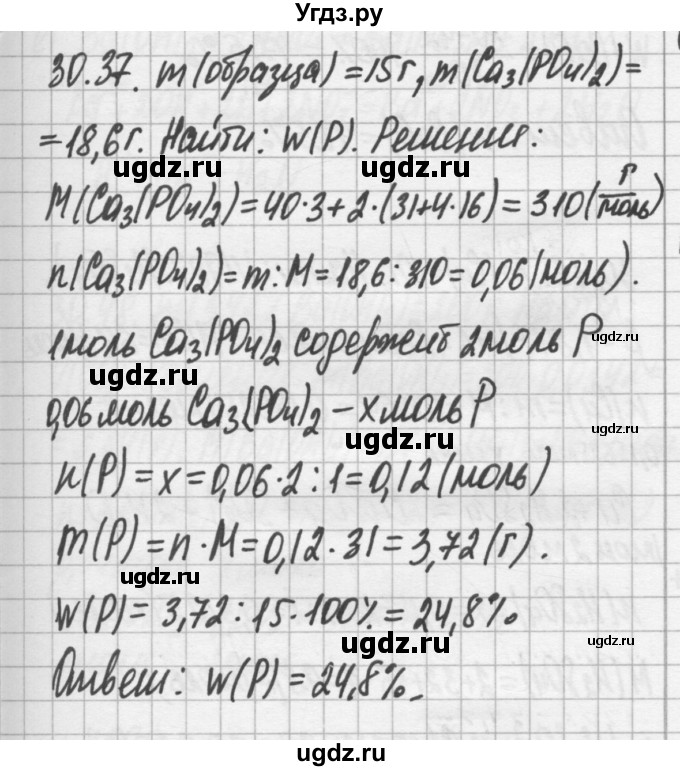 Угдз.ру
30.37. m(образца)=15г, m(Ca₃(PO₄)₂)=
=18,6г. Найти: W(P). Решение:
ugdz.ru ugdz.ru
M(Ca₃(PO₄)₂)=40·3+2·(31+4·16)=310(г/моль)
ugdz.ru
n(Ca₃(PO₄)₂)=m:M=18,6:310=0,06(моль).
1моль Ca₃(PO₄)₂ содержит 2моль P
ugdz.ru
ugdz.ru
0,06моль Ca₃(PO₄)₂ – x моль P
ugdz.ru
ugdz.ru
n(P)=x=0,06·2:1=0,12(моль)
m(P)=n·M=0,12·31=3,72(г).
ugdz.ru
W(P)=3,72:15·100%=24,8%
ugdz.ru
ugdz.ru
Ответ: W(P)=24,8%
ugdz.ru
ugdz.ru